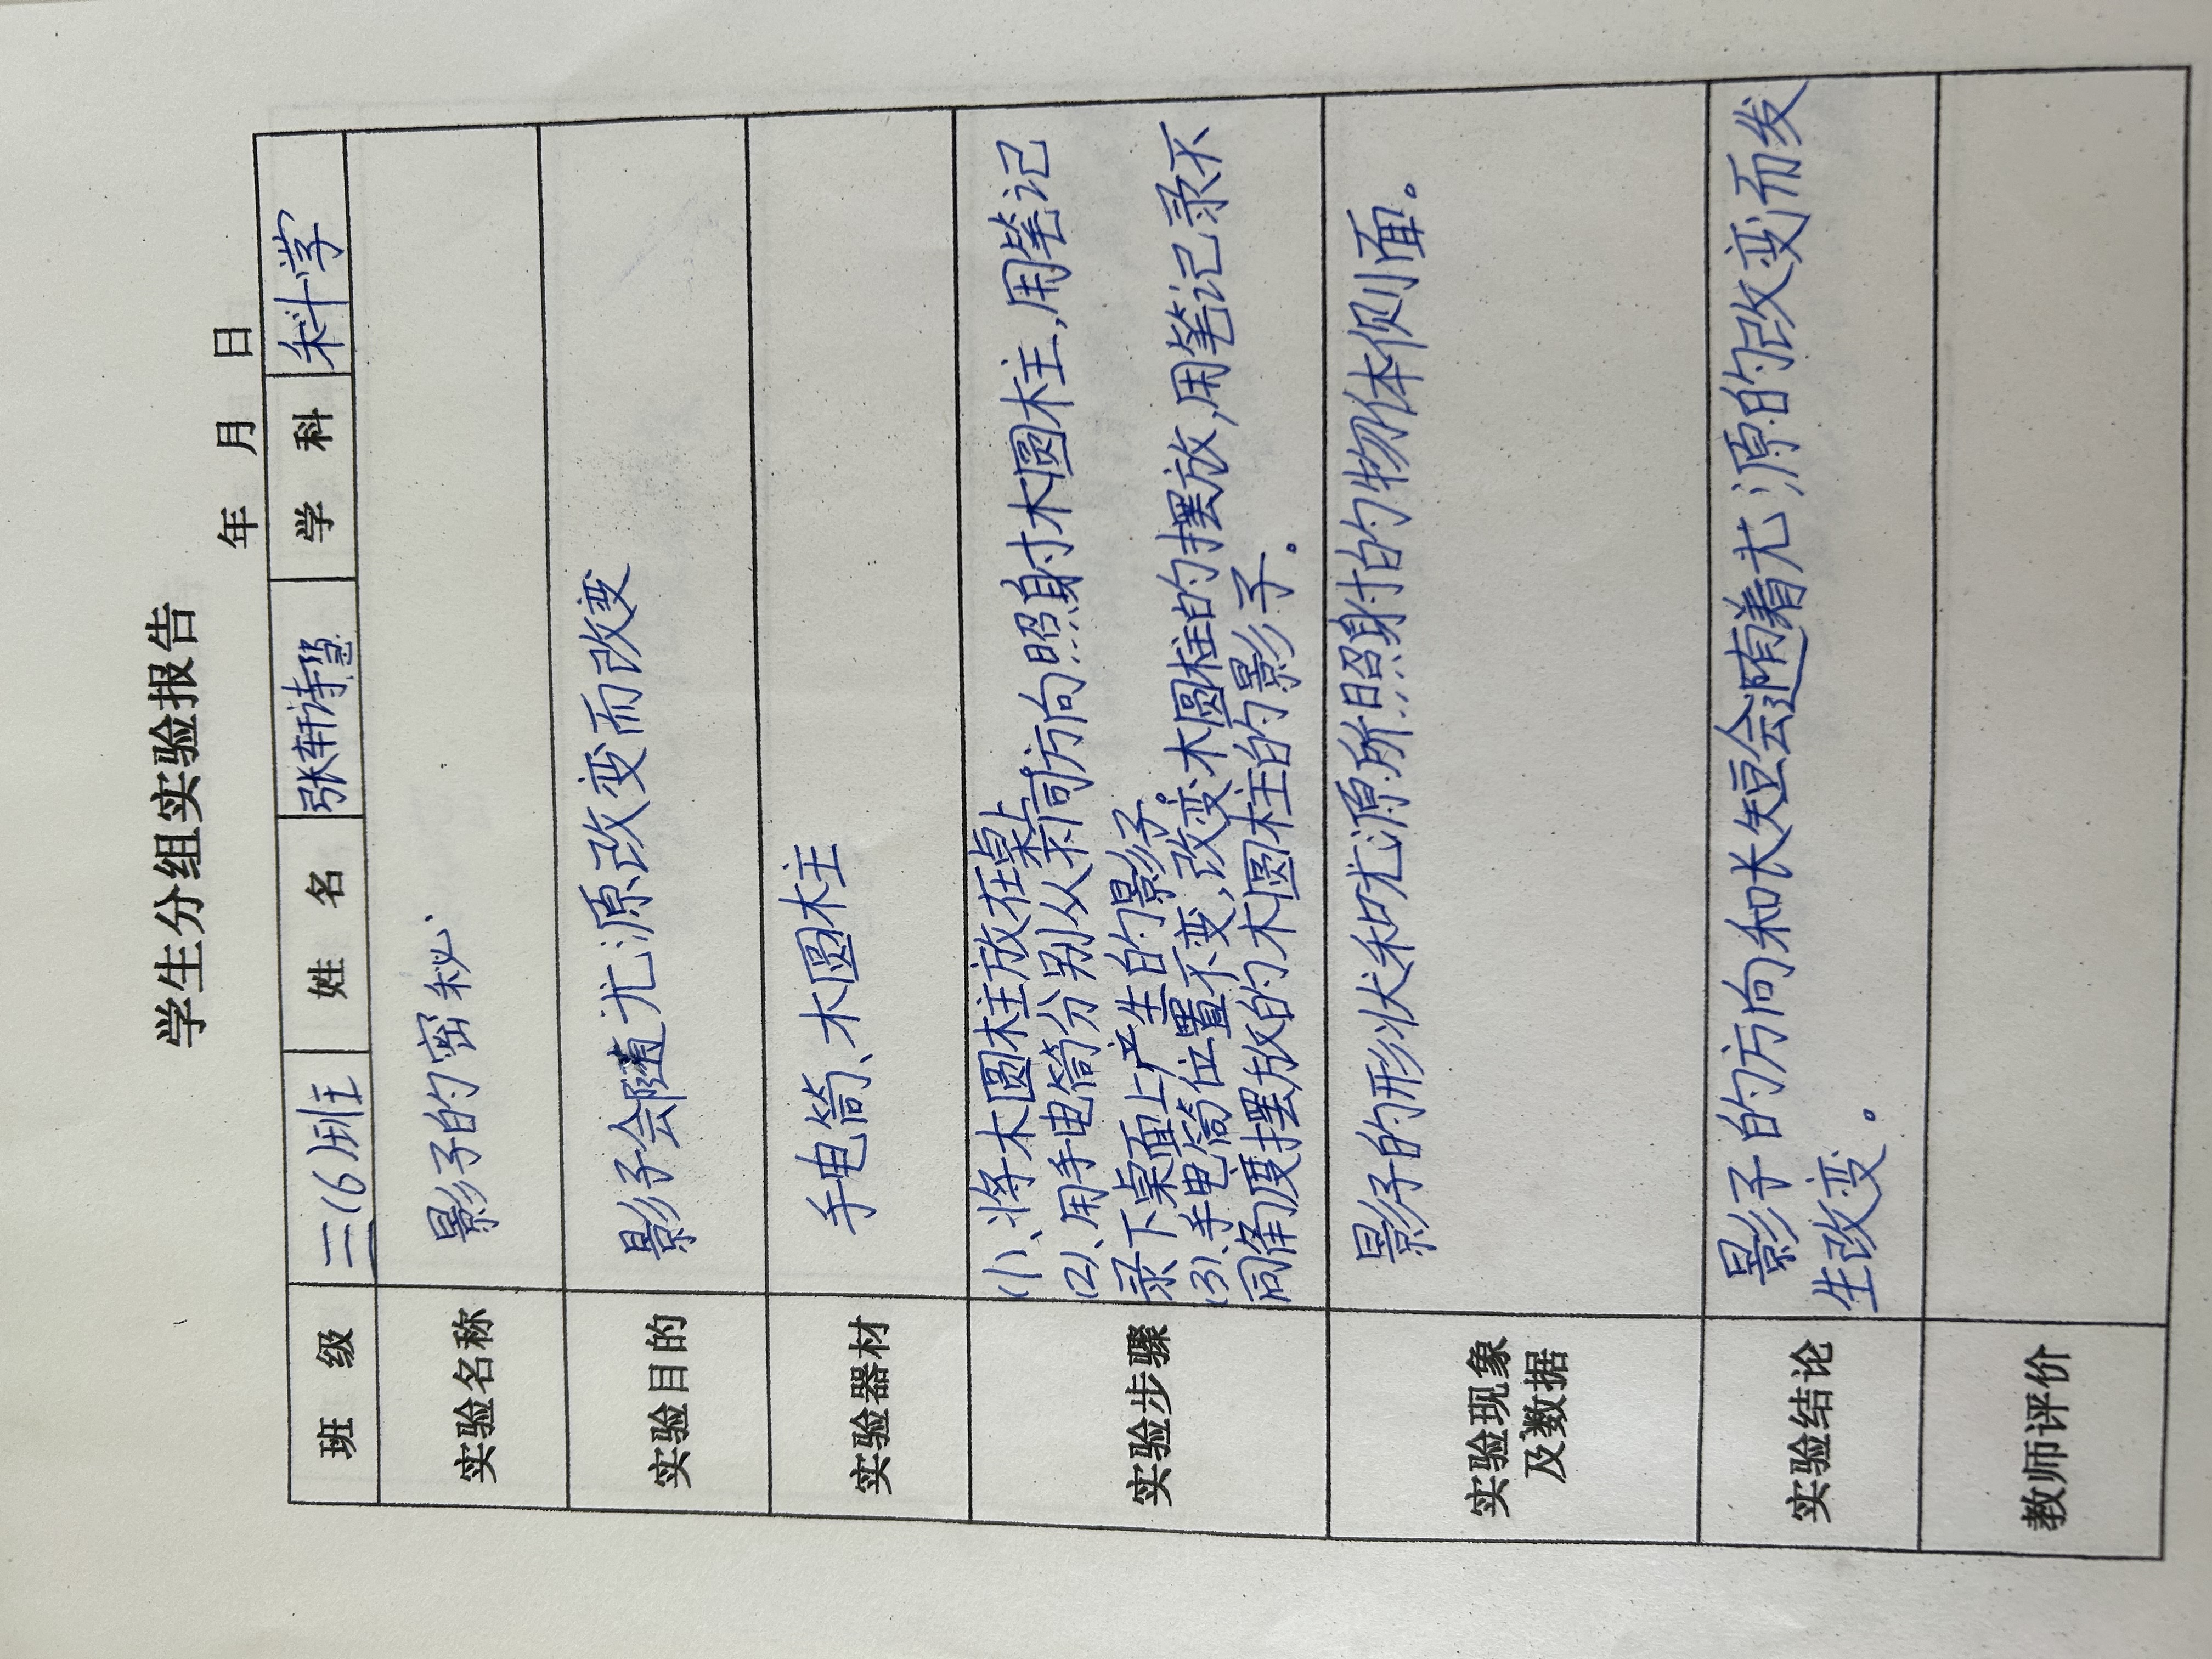 学生分组实验报告
年 月 日
班 级 二(6)班 姓 名 张轩诗慧 学 科 科学
实验名称 影子的密秘.
实验目的 影子会随尤源改变而改变
实验器材 手电筒、木圆柱
实验步骤
(1)、将木圆柱放在桌上
(2)、用手电筒分别从不同方向照射木圆柱,用笔记
录下桌面上产生的影子。
(3)、手电筒位置不变,改变木圆柱的摆放,用笔记录不
同角度摆放的木圆柱的影子.
实验现象
及数据
影子的形状和尤源所照射的物体侧面。
实验结论
影子的方向和长短会随着尤源的改变而发
生改变。
教师评价